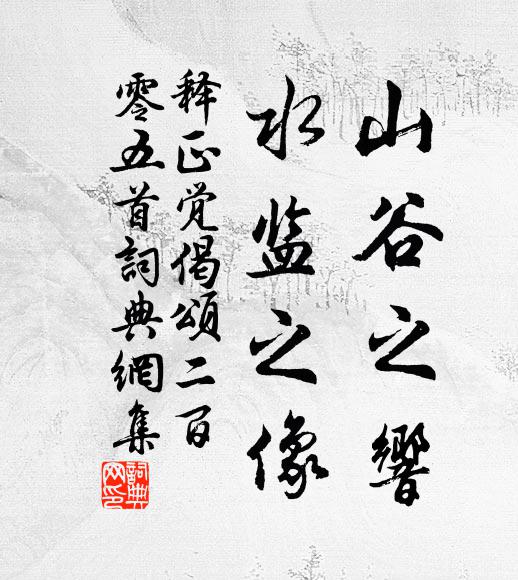 山谷之響
水监之像
释正觉偈頌二百
零五首詞典網集
詞典网印